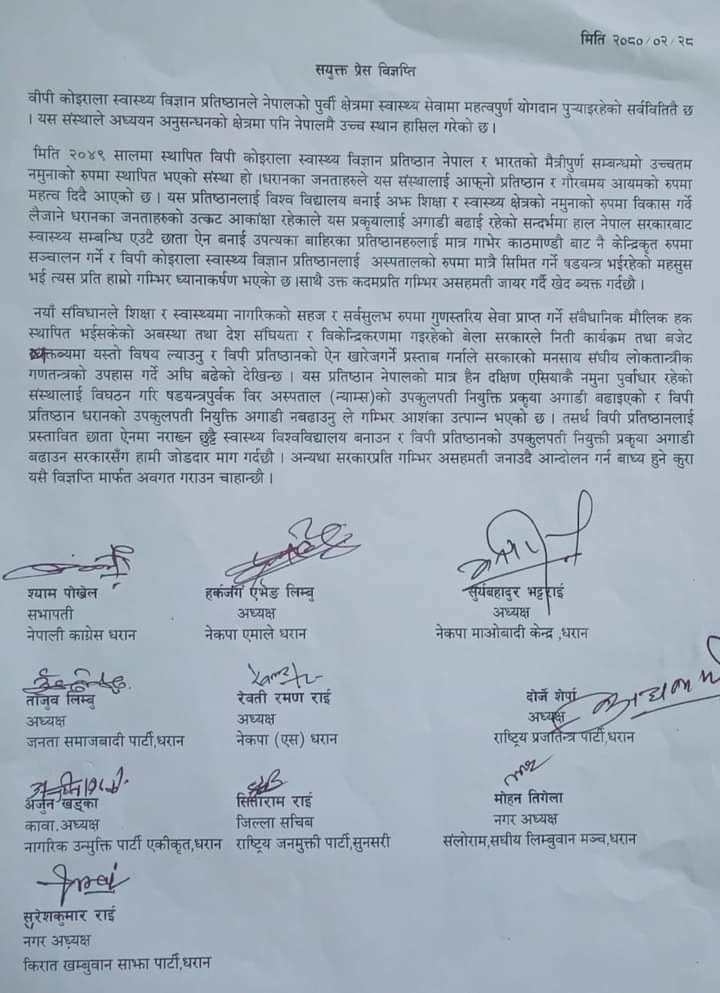 मिति २०८०/०२/२८
सयुक्त प्रेस विज्ञप्ति
वीपी कोइराला स्वास्थ्य विज्ञान प्रतिष्ठानले नेपालको पुर्वी क्षेत्रमा स्वास्थ्य सेवामा महत्वपुर्ण योगदान पुऱ्याइरहेको सर्ववितितै छ
। यस संस्थाले अध्ययन अनुसन्धनको क्षेत्रमा पनि नेपालमै उच्च स्थान हासिल गरेको छ ।
मिति २०४९ सालमा स्थापित विपी कोइराला स्वास्थ्य विज्ञान प्रतिष्ठान नेपाल र भारतको मैत्रीपुर्ण सम्बन्धमो उच्चतम
नमुनाको रुपमा स्थापित भएको संस्था हो ।धरानका जनताहरुले यस संस्थालाई आफ्नो प्रतिष्ठान र गौरबमय आयमको रुपमा
महत्व दिदै आएको छ । यस प्रतिष्ठानलाई विश्व विद्यालय बनाई अझ शिक्षा र स्वास्थ्य क्षेत्रको नमुनाको रुपमा विकास गर्दै
लैजाने धरानका जनताहरुको उत्कट आकांक्षा रहेकाले यस प्रकृयालाई अगाडी बढाई रहेको सन्दर्भमा हाल नेपाल सरकारबाट
स्वास्थ्य सम्बन्धि एउटै छाता ऐन बनाई उपत्यका बाहिरका प्रतिष्ठानहरुलाई मात्र गाभेर काठमाण्डौ बाट नै केन्द्रिकृत रुपमा
सञ्चालन गर्ने र विपी कोइराला स्वास्थ्य विज्ञान प्रतिष्ठानलाई अस्पतालको रुपमा मात्रै सिमित गर्ने षडयन्त्र भईरहेको महसुस
भई त्यस प्रति हाम्रो गम्भिर ध्यानाकर्षण भएकेा छ ।साथै उक्त कदमप्रति गम्भिर असहमती जायर गर्दै खेद ब्यक्त गर्दछौ ।
नयाँ संविधानले शिक्षा र स्वास्थ्यमा नागरिकको सहज र सर्वसुलभ रुपमा गुणस्तरिय सेवा प्राप्त गर्ने संबैधानिक मौलिक हक
स्थापित भईसकेको अबस्था तथा देश संघियता र विकेन्द्रिकरणमा गइरहेको बेला सरकारले निती कार्यक्रम तथा बजेट
क्तब्यमा यस्तो विषय ल्याउनु र विपी प्रतिष्ठानको ऐन खारेजगर्ने प्रस्ताब गर्नाले सरकारको मनसाय संघीय लोकतान्त्रीक
गणतन्त्रको उपहास गर्दै अघि बढेको देखिन्छ । यस प्रतिष्ठान नेपालको मात्र हैन दक्षिण एसियाकै नमुना पुर्वाधार रहेको
संस्थालाई विघठन गरि षडयन्त्रपुर्वक विर अस्पताल (न्याम्स)को उपकुलपती नियुक्ति प्रकृया अगाडी बढाइएको र विपी
प्रतिष्ठान धरानको उपकुलपती नियुक्ति अगाडी नबढाउनु ले गम्भिर आशंका उत्पान्न भएको छ । तसर्थ विपी प्रतिष्ठानलाई
प्रस्तावित छाता ऐनमा नराख्न छुट्टै स्वास्थ्य विश्वविद्यालय बनाउन र विपी प्रतिष्ठानको उपकुलपती नियुक्ती प्रकृया अगाडी
बढाउन सरकारसँग हामी जोडदार माग गर्दछौ । अन्यथा सरकारप्रति गम्भिर असहमती जनाउदै आन्दोलन गर्न बाध्य हुने कुरा
यसै विज्ञप्ति मार्फत अवगत गराउन चाहान्छौ ।
श्याम पोखेल हर्कजंग एभेङ लिम्बु सुर्यबहादुर भट्टराई
सभापती अध्यक्ष अध्यक्ष
नेपाली काग्रेस धरान नेकपा एमाले धरान नेकपा माओबादी केन्द्र ,धरान
ताजुव लिम्बु रेवती रमण राई दोर्जे शेर्पा
अध्यक्ष अध्यक्ष अध्यक्ष
जनता समाजबादी पार्टी,धरान नेकपा (एस) धरान राष्ट्रिय प्रजातन्त्र पार्टी,धरान
अर्जुन खड्का सिताराम राई मोहन तिगेला
कावा,अध्यक्ष जिल्ला सचिब नगर अध्यक्ष
नागरिक उन्मुक्ति पार्टी एकीकृत,धरान राष्ट्रिय जनमुक्ती पार्टी,सुनसरी संलोराम,सघीय लिम्बुवान मञ्च,धरान
सुरेशकुमार राई
नगर अध्यक्ष
किरात खम्बुवान साझा पार्टी,धरान